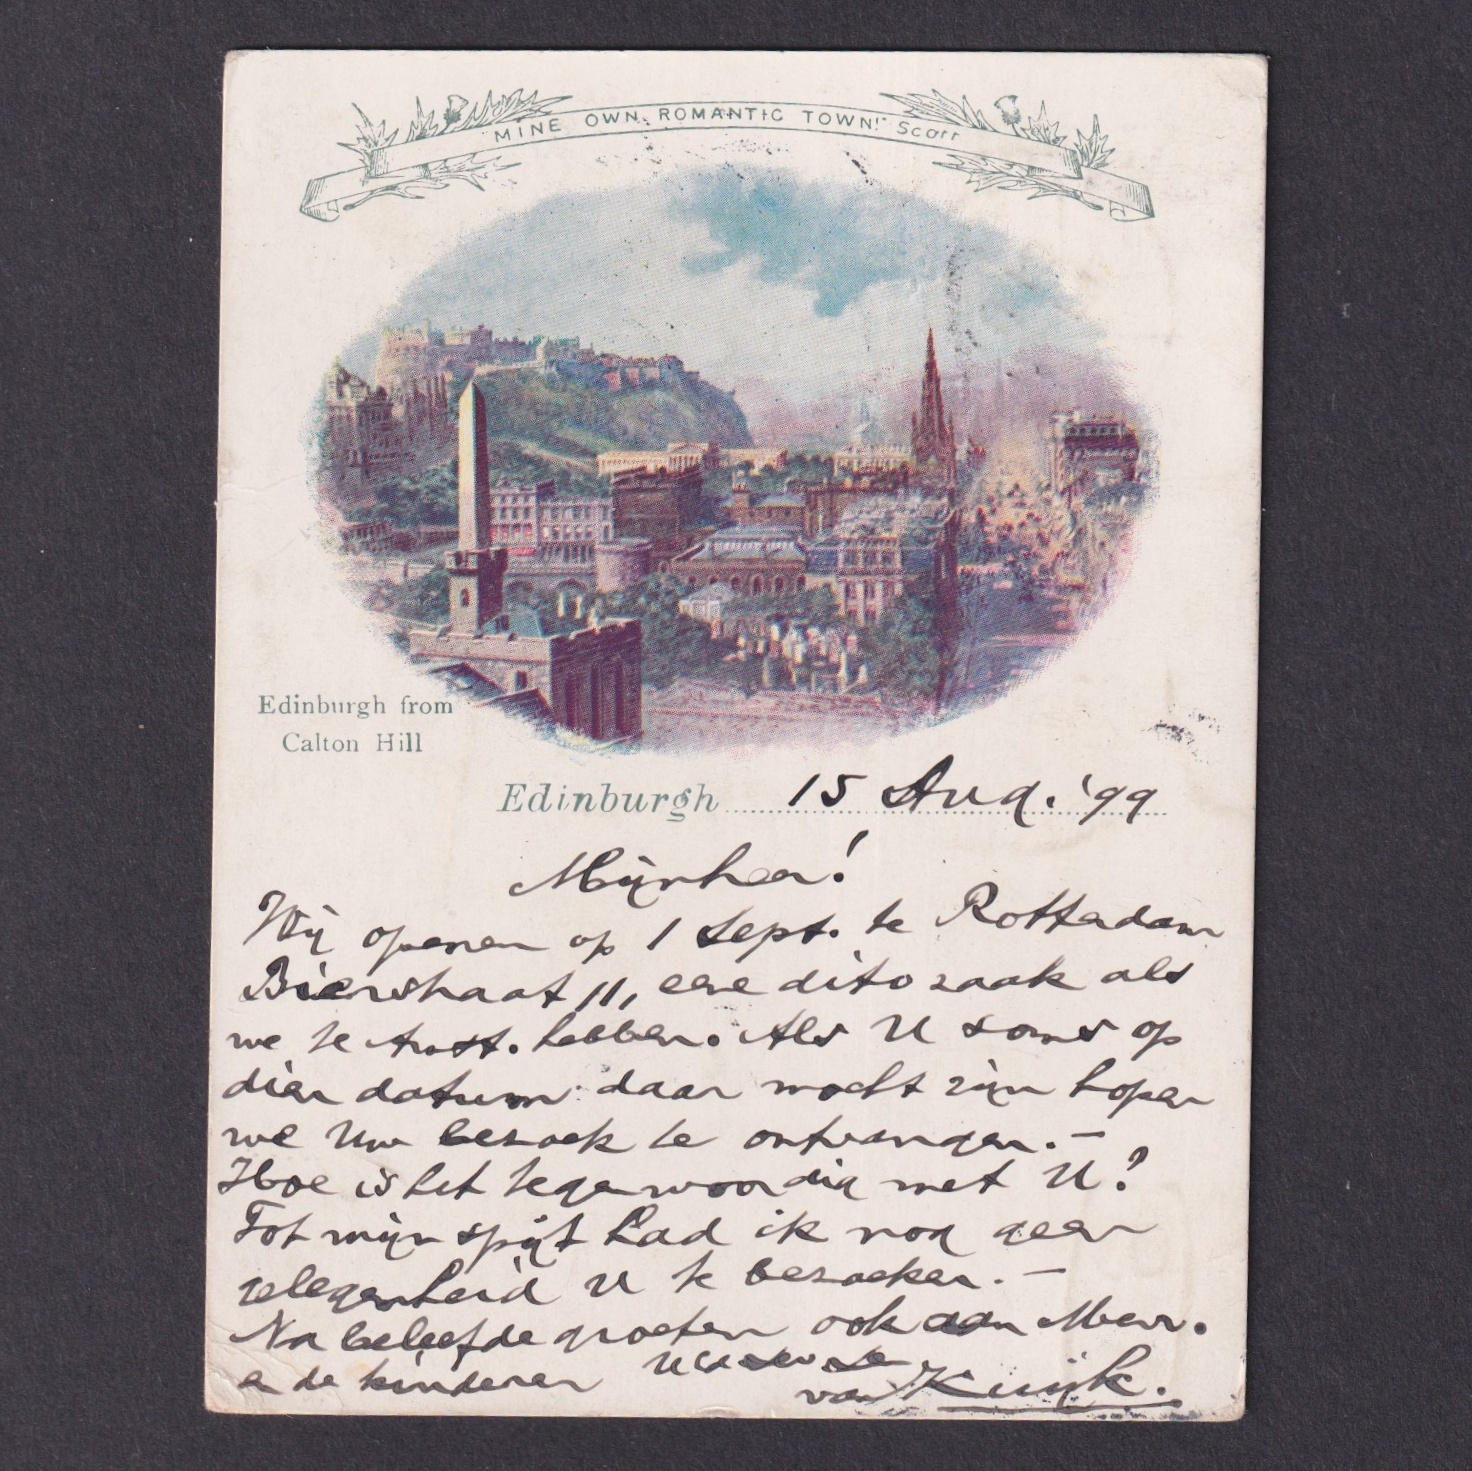 MINE OWN ROMANTIC TOWN!" Scott
Edinburgh from
Calton Hill
Edinburgh 15 Aug. '99
Mijnheer!
Wij openen op 1 Sept. te Rotterdam
Bierstraat 11, eene dito zaak als
we te Amst. hebben. Als U soms op
dien datum daar mocht zijn hopen
we Uw bezoek te ontvangen.-
Hoe is het tegenwoordig met U?
Tot mijn spijt had ik nog geen
gelegenheid U te bezoeken.-
Na beleefde groeten ook aan Mevr.
en de kinderen
van Kuijk.